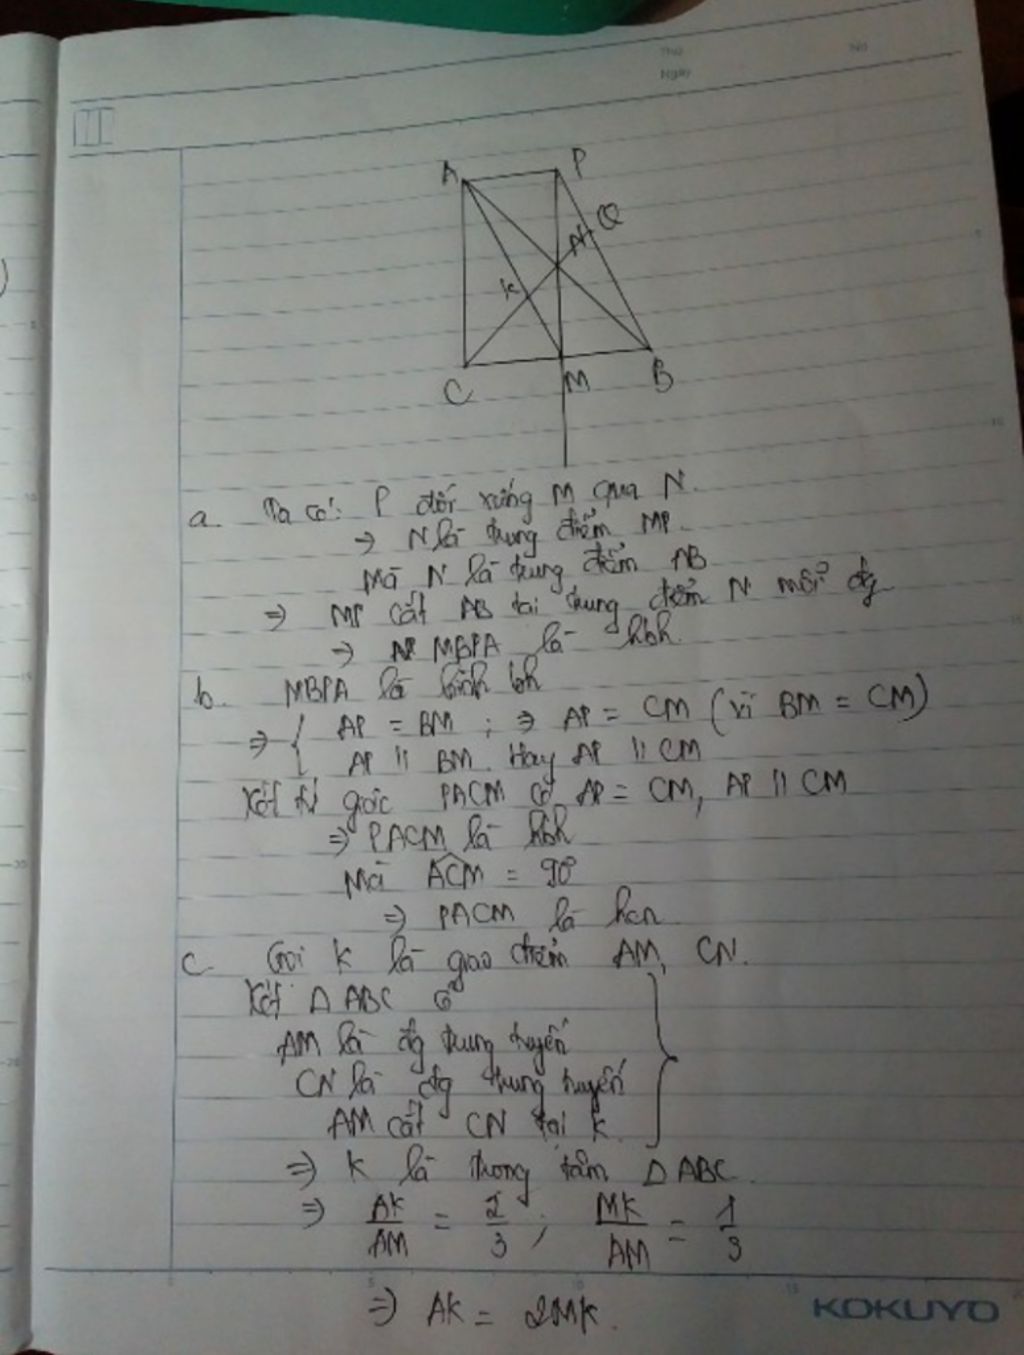 Thứ
No
Ngày
A
P
Q
N
K
C
M
B
a. Ta có: P đối xứng M qua N.
⇒ N là trung điểm MP.
Mà N là trung điểm AB
⇒ MP cắt AB tại trung điểm N mỗi đg
⇒ MBPA là hbh.
b. MBPA là hình bh
⇒ { AP = BM ; ⇒ AP = CM (vì BM = CM)
AP // BM. Hay AP // CM
Xét tứ giác PACM có AP = CM, AP // CM
⇒ PACM là hbh
Mà ACM = 90°
⇒ PACM là hcn
c. Gọi K là giao điểm AM, CN.
Xét Δ ABC có
AM là đg trung tuyến
CN là đg trung tuyến
AM cắt CN tại K
⇒ K là trọng tâm Δ ABC.
⇒ AK/AM = 2/3 ; MK/AM = 1/3
⇒ AK = 2MK.
KOKUYO